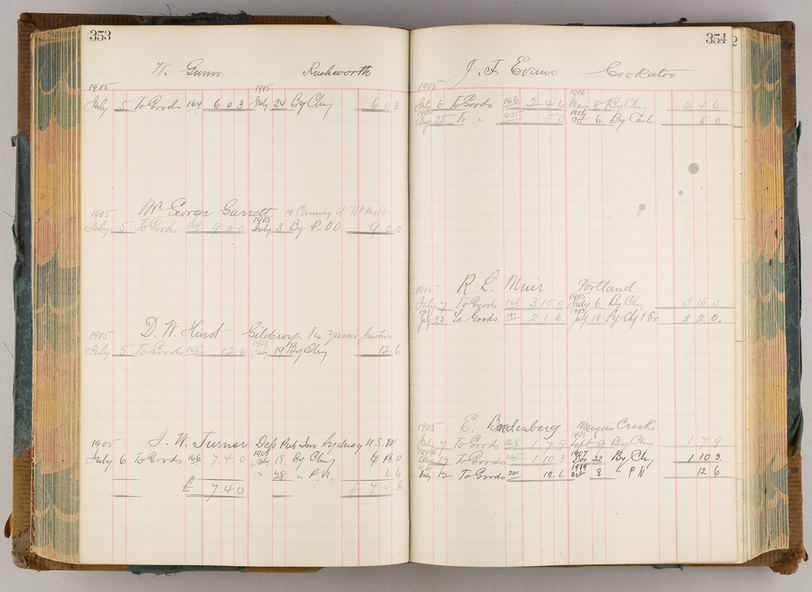 353
W. Gunn Rushworth
1905 1905
July 5 To Goods 164 6 0 3 July 24 By Chq 6 0 3
Mr George Garrett 14 Canning St Nth Melb
1905 1905
July 5 To Goods 164 9 0 0 July 3 By P.O.O 9 0 0
D. W. Hurst
1905
July 5 To Goods 165 12 6 19 By Chq 12 6
J. W. Turner Dep Pub Ins Sydney N.S.W
1905
July 6 To Goods 166 7 4 0 July 18 By Chq
" 28 " P.N. 6 6
£ 7 4 0
354
J. F. Evans Cockatoo
1905 1906
July 6 To Goods 166 2 4 6 May 8 By Chq 2 4 6
Aug 25 To " 5 0 Oct 6 By Cash 5 0
R. L. Muir Portland
1905 1905
July 7 To Goods 168 3 15 0 July 6 By Chq 3 15 0
July 28 To Goods 191 2 1 6 July 18 By Chq 2 2 0
E. Bordenberg Creek
1905
July 7 To Goods 168 1 7 9 Sept 9 By Chq 1 7 9
Aug 17 To Goods 1 10 3 1907 Dec 22 By Ch 1 10 3
July 12 To Goods 12 6 Oct 8 " P N 12 6